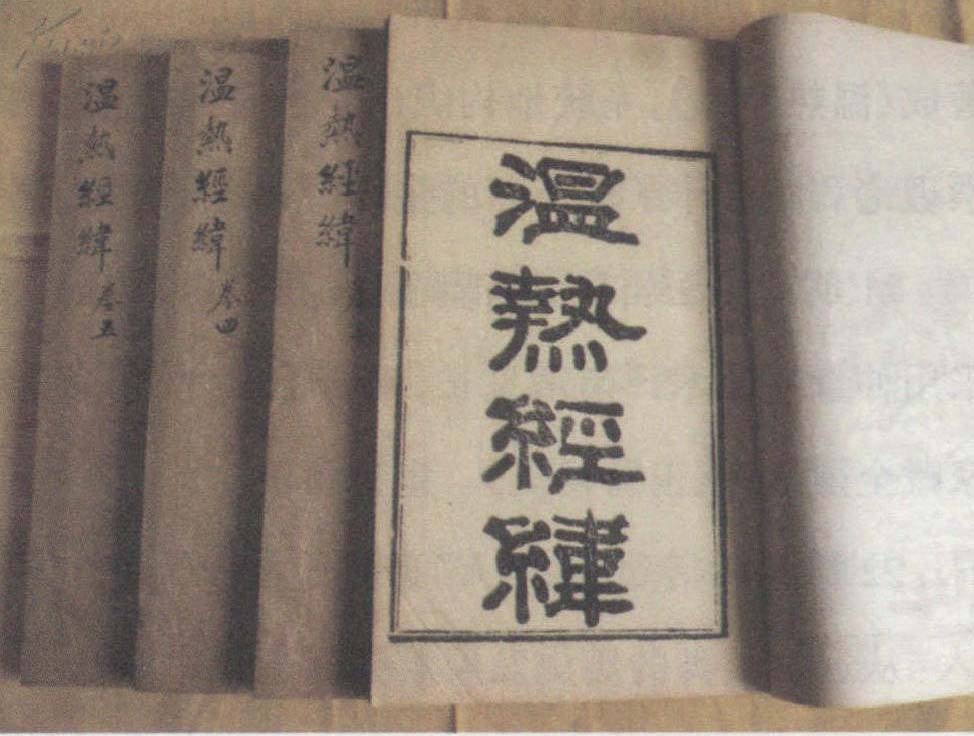 溫熱經緯
溫熱經緯
溫熱經緯 卷四
溫熱經緯 卷五